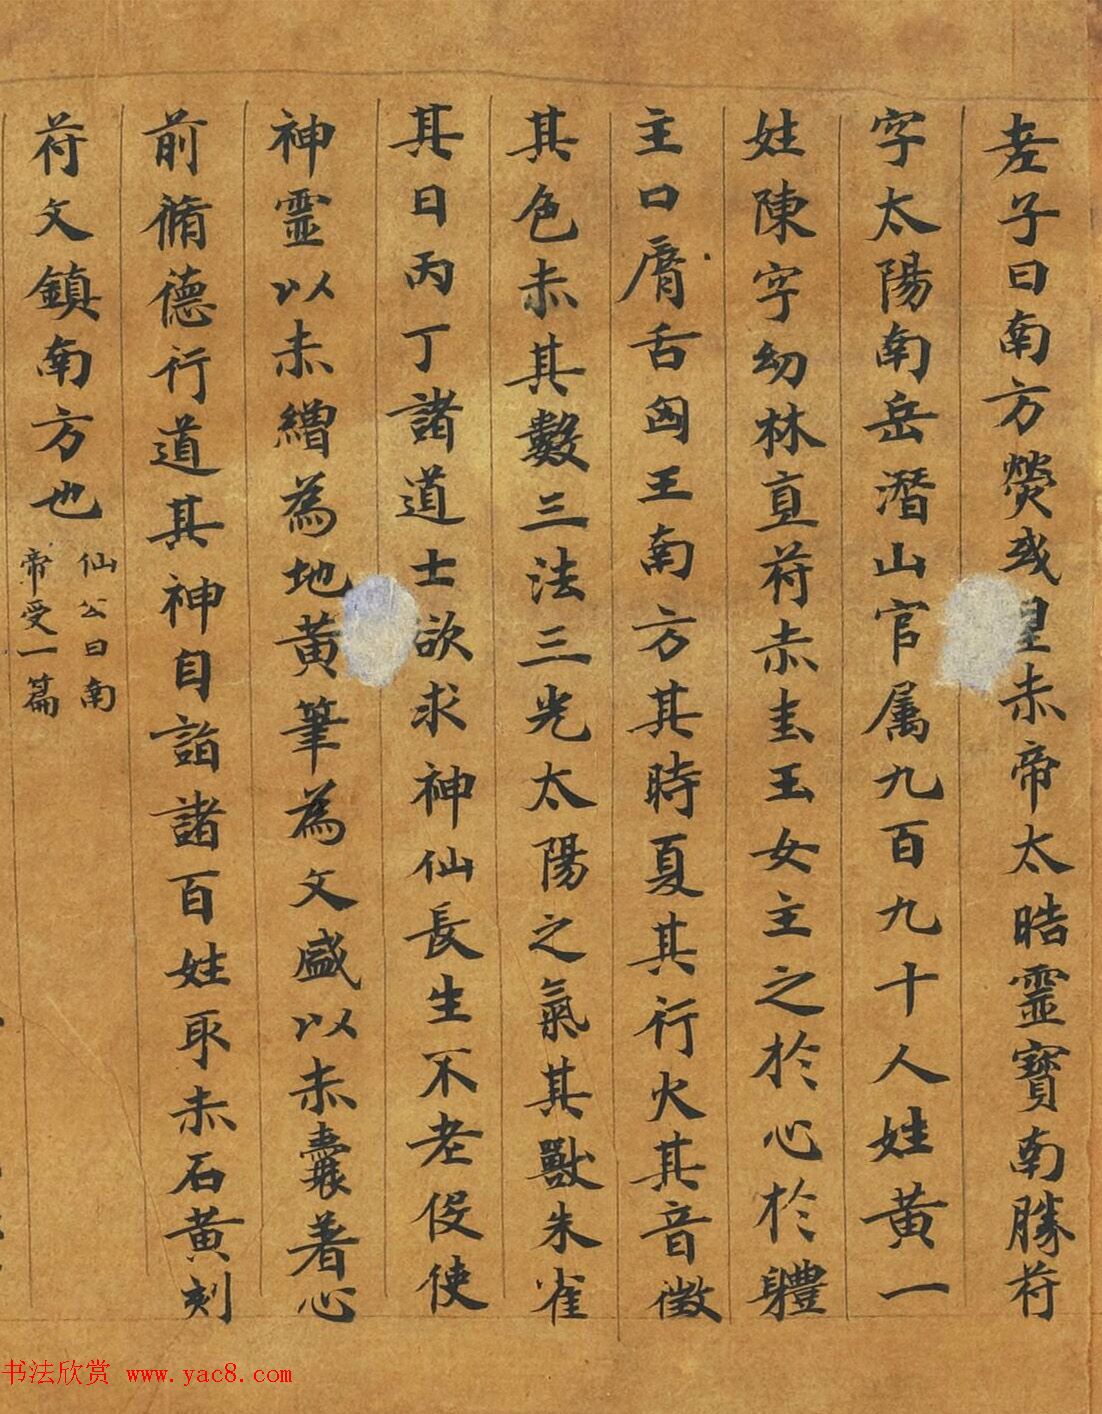 老子曰南方熒或皇赤帝太晧靈寶南勝苻
字太陽南岳潛山官属九百九十人姓黃一
姓陳字幼林直苻赤圭玉女主之於心於軆
主口脣舌匈王南方其時夏其行火其音徵
其色赤其數三法三光太陽之氣其獸朱雀
其日丙丁諸道士欲求神仙長生不老役使
神靈以赤繒為地黃筆為文盛以赤囊著心
前脩德行道其神自詣諸百姓取赤石黃刻
苻文鎮南方也
仙公曰南
帝受一篇
书法欣赏 www.yac8.com